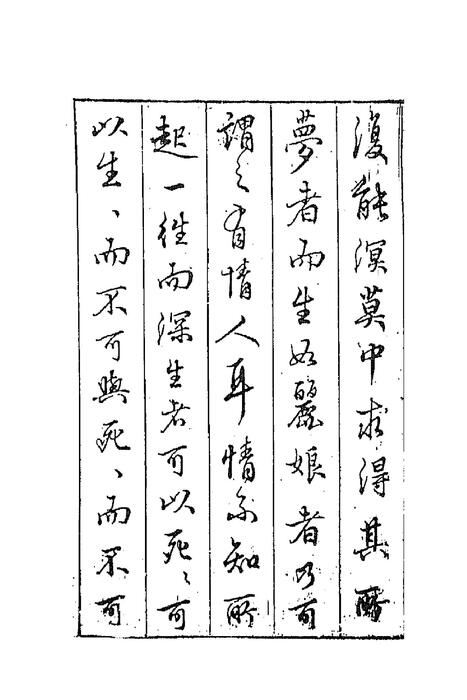 復能溟莫中求得其所
夢者而生如麗娘者乃可
謂之有情人耳情不知所
起一往而深生者可以死、可
以生、而不可與死、而不可